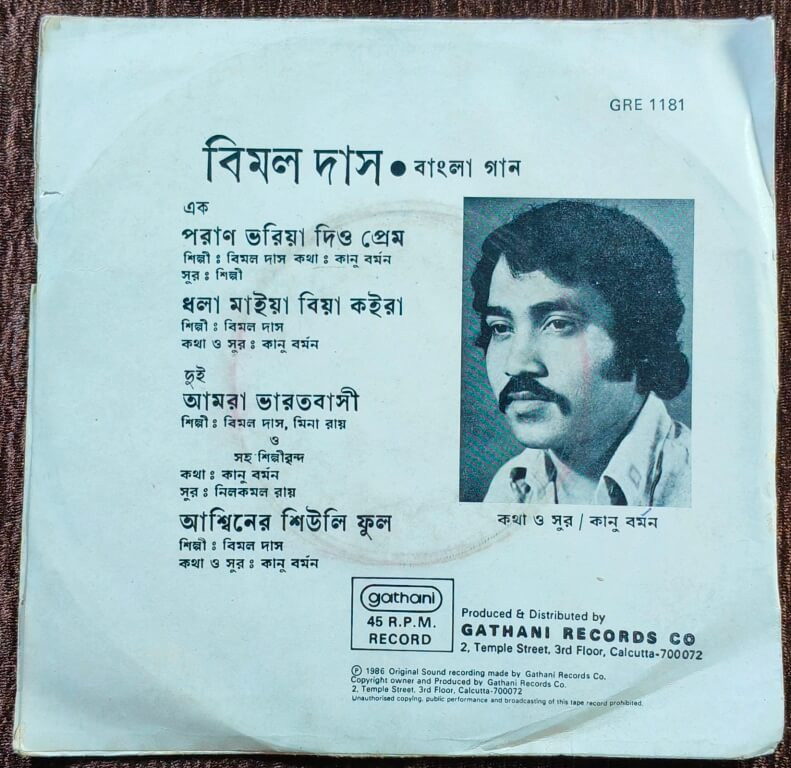 GRE 1181
বিমল দাস ● বাংলা গান
এক
পরাণ ভরিয়া দিও প্রেম
শিল্পী ঃ বিমল দাস কথা ঃ কানু বর্মন
সুর ঃ শিল্পী
ধলা মাইয়া বিয়া কইরা
শিল্পী ঃ বিমল দাস
কথা ও সুর ঃ কানু বর্মন
দুই
আমরা ভারতবাসী
শিল্পী ঃ বিমল দাস, মিনা রায়
ও
সহ শিল্পীবৃন্দ
কথা ঃ কানু বর্মন
সুর ঃ নিলকমল রায়
আশ্বিনের শিউলি ফুল
শিল্পী ঃ বিমল দাস
কথা ও সুর ঃ কানু বর্মন
কথা ও সুর / কানু বর্মন
gathani
45 R.P.M.
RECORD
Produced & Distributed by
GATHANI RECORDS CO
2, Temple Street, 3rd Floor, Calcutta-700072
Ⓟ 1986 Original Sound recording made by Gathani Records Co.
Copyright owner and Produced by Gathani Records Co.
2, Temple Street, 3rd Floor, Calcutta-700072
Unauthorised copying, public performance and broadcasting of this tape record prohibited.